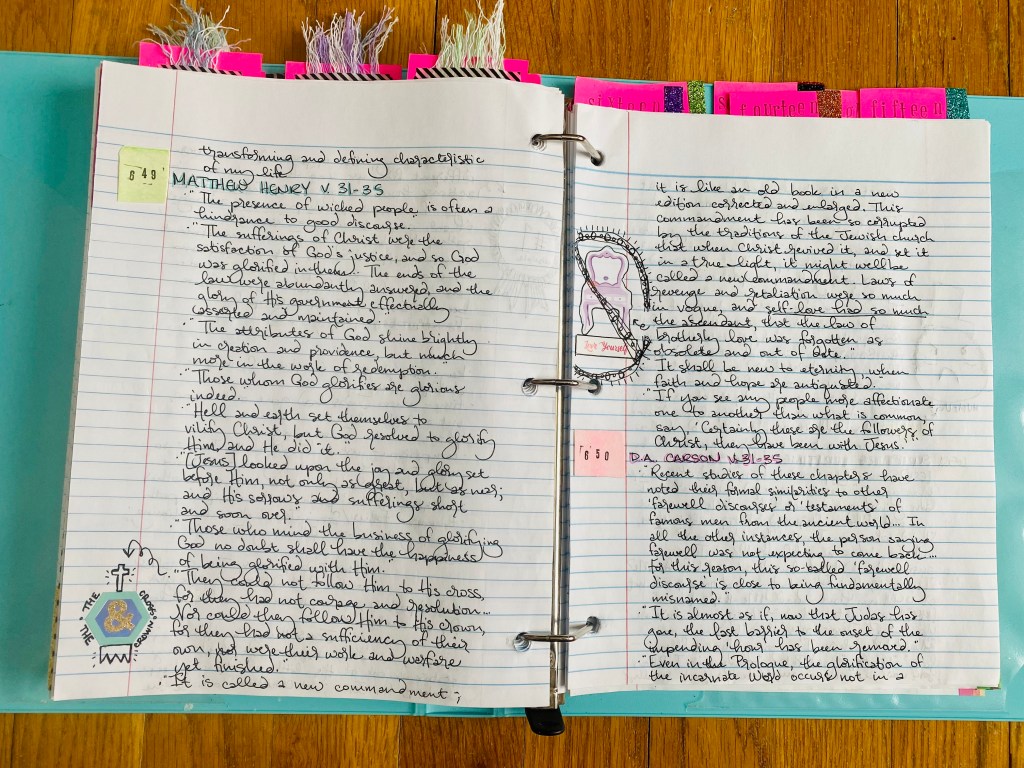 sixteen
fourteen
fifteen
transforming and defining characteristic
of my life
649
MATTHEW HENRY V. 31-35
"The presence of wicked people is often a
hindrance to good discourse.
"The sufferings of Christ were the
satisfaction of God's justice, and so God
was glorified in them. The ends of the
law were abundantly answered, and the
glory of His government effectually
asserted and maintained."
"The attributes of God shine brightly
in creation and providence, but much
more in the work of redemption."
"Those whom God glorifies are glorious
indeed.
"Hell and earth set themselves to
vilify Christ, but God resolved to glorify
Him, and He did it.
"[Jesus] looked upon the joy and glory set
before Him, not only as great, but as near;
and His sorrows and sufferings short
and soon over."
"Those who mind the business of glorifying
God no doubt shall have the happiness
of being glorified with Him."
"They could not follow Him to His cross,
for them had not courage and resolution...
Nor could they follow Him to His crown,
for they had not a sufficiency of their
own, nor were their work and warfare
yet finished."
"It is called a new commandment;
THE CROSS
&
THE CROWN
it is like an old book in a new
edition corrected and enlarged. This
commandment has been so corrupted
by the traditions of the Jewish church
that when Christ revived it, and set it
in a true light, it might well be
called a new commandment. Laws of
revenge and retaliation were so much
in vogue, and self-love had so much
the ascendant, that the law of
brotherly love was forgotten as
obsolete and out of date."
"It shall be new to eternity, when
faith and hope are antiquated."
"If you see any people more affectionate
one to another than what is common,
say, 'Certainly these are the followers of
Christ, they have been with Jesus.'"
Love Yourself
650
D.A. CARSON V. 31-35
"Recent studies of these chapters have
noted their formal similarities to other
'farewell discourses' or 'testaments' of
famous men from the ancient world... In
all the other instances, the person saying
farewell was not expecting to come back...
for this reason, this so-called 'farewell
discourse' is close to being fundamentally
misnamed."
"It is almost as if, now that Judas has
gone, the last barrier to the onset of the
impending 'hour' has been removed."
"Even in the Prologue, the glorification of
the incarnate Word occurs not in a